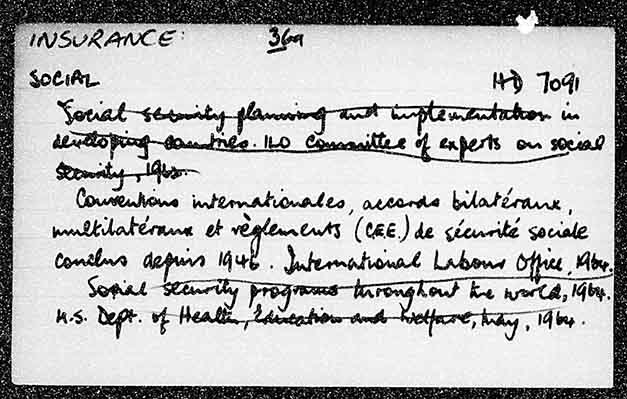 INSURANCE: 36a
SOCIAL HD 7091
Social security planning and implementation in
developing countries. ILO Committee of experts on social
security, 1962.
Conventions internationales, accords bilatéraux,
multilatéraux et règlements (C.E.E.) de sécurité sociale
conclus depuis 1946. International Labour Office, 1964.
Social security programs throughout the world, 1964.
U.S. Dept. of Health, Education and Welfare, May, 1964.